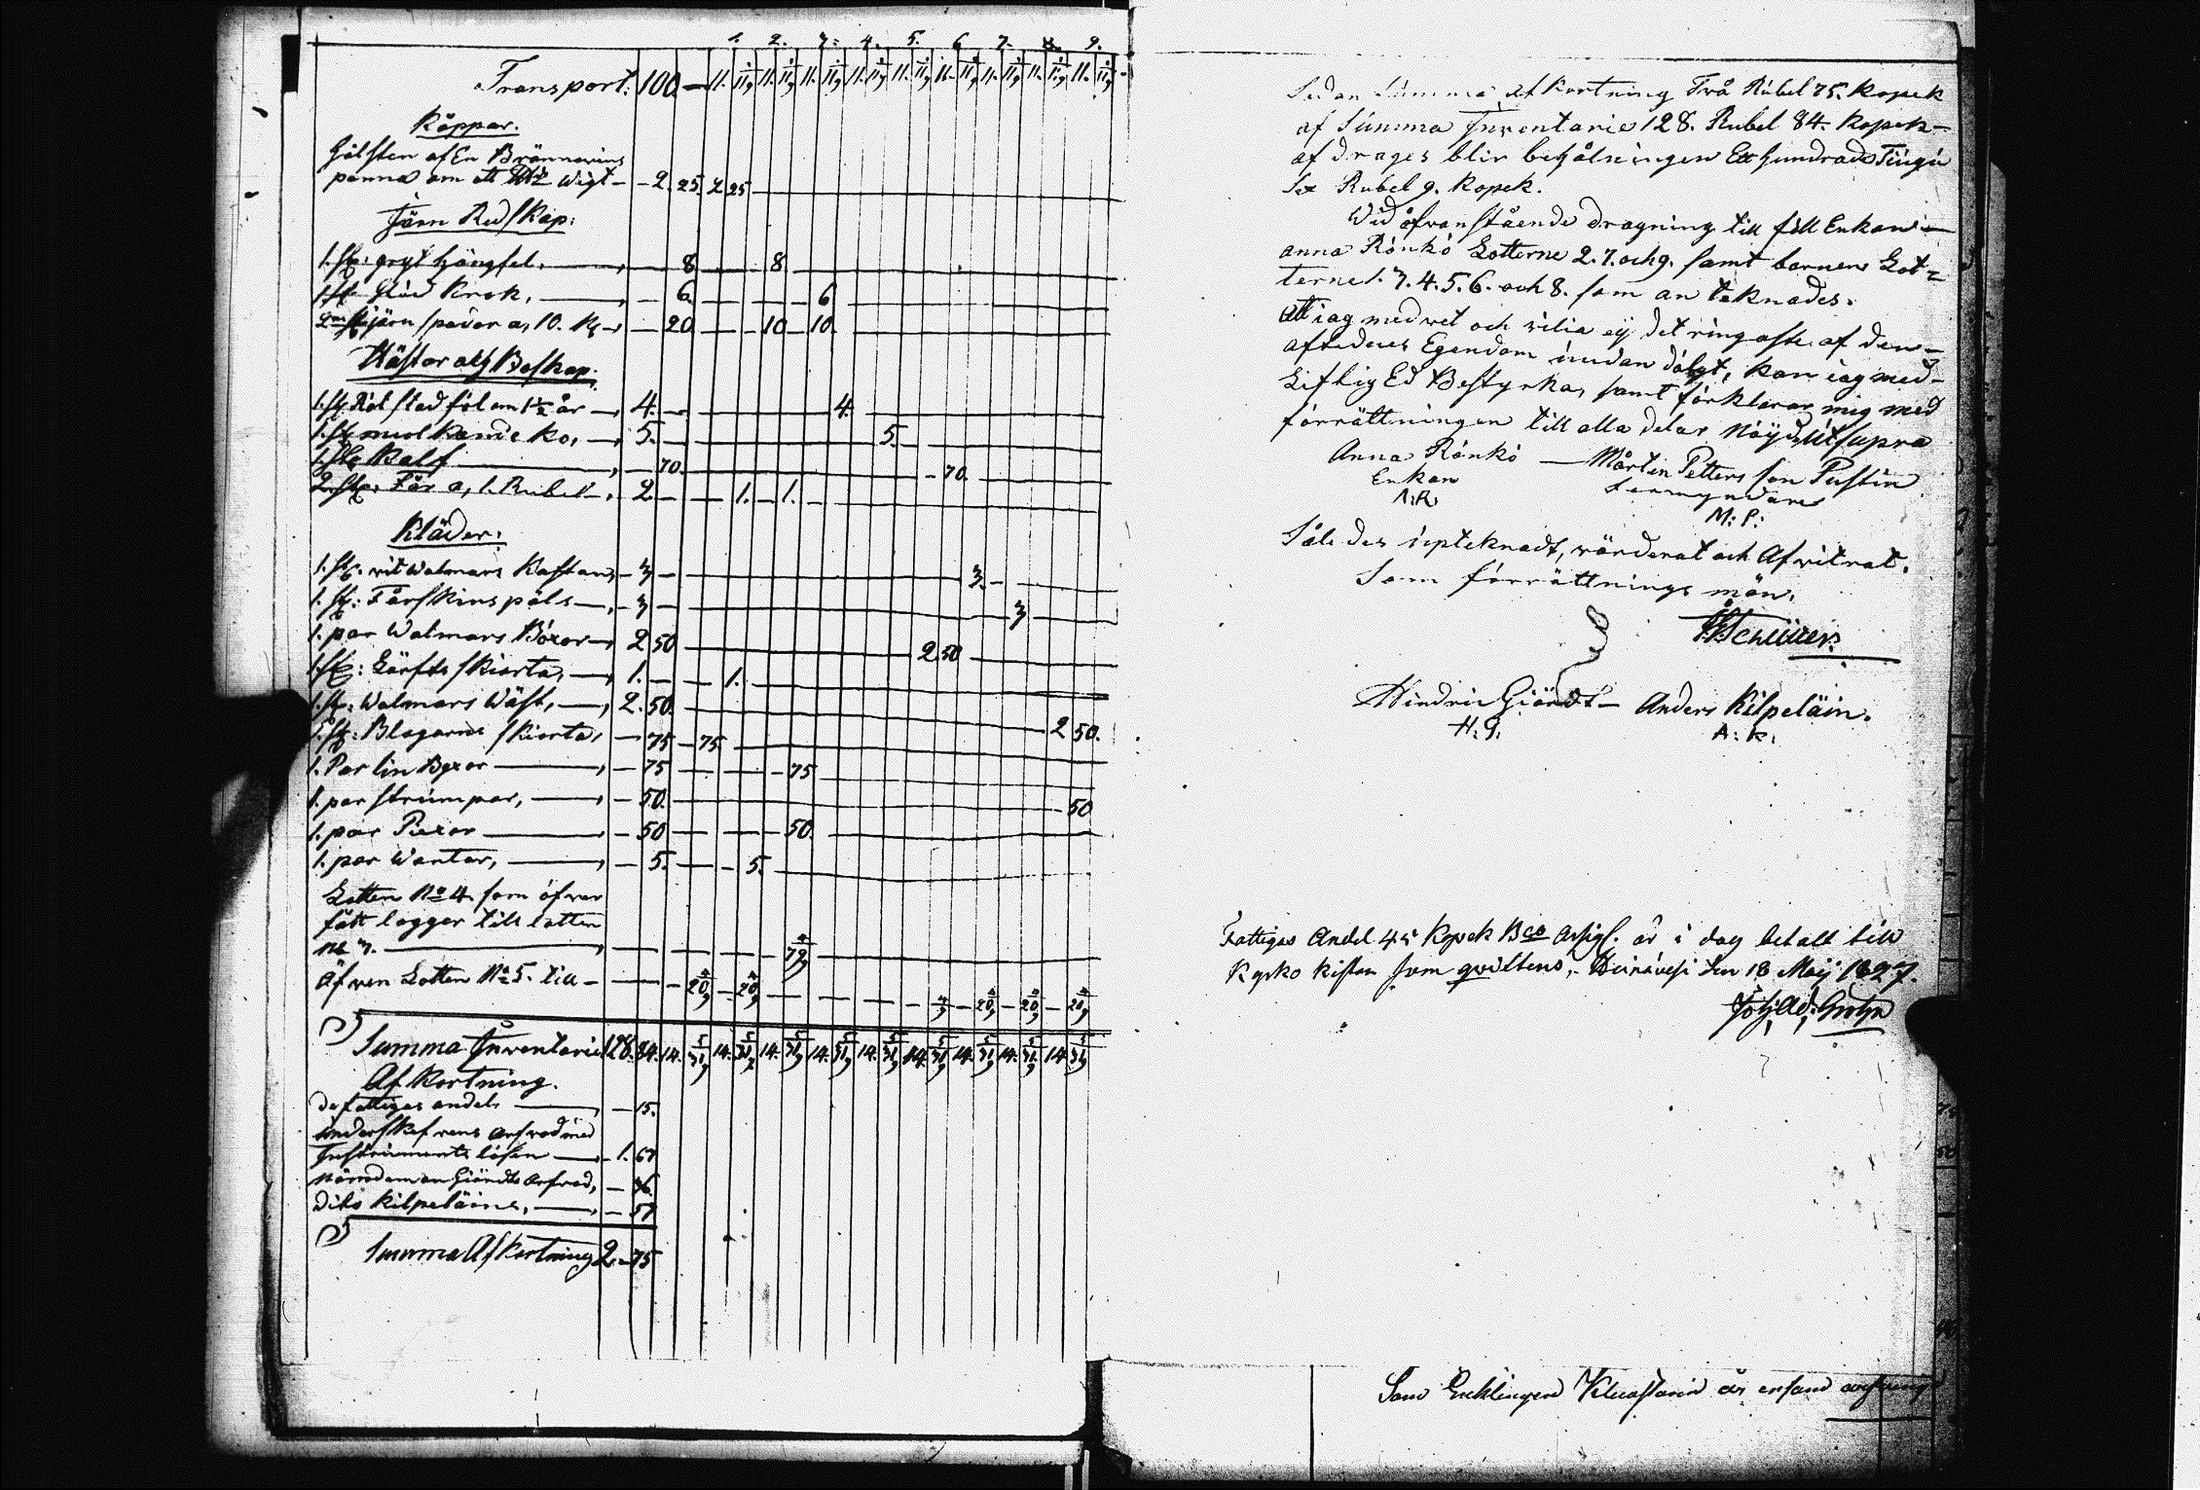 1. 2. 3. 4. 5. 6 7. 8. 9.
Transport: 100 – 11. 1/11,9 11. 1/11,9 11. 1/11,9 11. 1/11,9 11. 1/11,9 11. 1/11,9 11. 1/11,9 11. 1/11,9 11. 1/11,9
Köppar.
Hälften af En Brännevins
panna om ett wigt – 2. 25 2 25
Järn Redskap:
1. st: gryt hängsel, 8 8
1. st Glöd Krok, 6. 6
2ne st järn spador a, 10. K, 20 10 10
Hästar och Boskap:
1. st Röt stod föl om 1½ år 4. 4.
1. st miolkande ko, 5. 5.
1. st Kalf 70. 70.
2. st. Får a, 1. Rubel, 2. 1. 1.
Kläder:
1. st. vit Walmars Kaftan, 3 3.
1. st: Fårskins päls 3 3
1. par Walmars Böxor 2 50 2 50
1. st: Lärfts skiorta, 1. 1.
1. st: Walmars Wäst, 2. 50 2 50.
1. st: Blagarns skiorta, 75 75
1. Par lin Byxor 75 75
1. par strumpor, 50. 50
1. par Piexor 50 50
1. par Wantar, 5. 5.
Lotten No 4. som öfver
fått lägger till lotten
No 3.
Äfven Lotten No 5. till
Summa Inventarie 128. 84. 14. 5/31,9 14. 5/31,9 14. 5/31,9 14. 5/31,9 14. 5/31,9 14. 5/31,9 14. 5/31,9 14. 5/31,9 14. 5/31,9
Af Kortning.
de fattigas andel 15.
underskrefvens Arfvod med
Instruments lösen 1. 67
Nämdeman Giärdts Arfvod, 36.
Dito Kilpeläins, 57
Summa Af Kortning 2. 75
Sedan Summa Af Kortning Två Rubel 75. Kopek
af Summa Inventarie 128. Rubel 84. Kopek
af drages blir behålningen Ett Hundrade Tiugu
Sex Rubel 9. Kopek.
Wid ofvanstående dragning till föll Enkan
anna Rönkö Lotterne 2. 7. och 9. samt barnen Lot=
terne 1. 3. 4. 5. 6. och 8. som an teknades.
Att iag med vet och vilia ej det ringaste af den
aflednes Egendom undan dolgt, kan iag med
Liflig Ed Bestyrka, samt förklarar mig med
förrättningen till alla delar Nöyd, Ut supra
Anna Rönkö — Mårten Petters son Pustin
Enkan förmyndare
A: R: M: P:
Således upteknadt, värderat och Afvitrat.
Som förrättnings män,
Hindric Giärdt – Anders Kilpeläin.
H: G. A: K:
Fattigas Andel 45 Kopek Bco Assig. är i dag betalt till
Kyrko kistan som qvitteras, – Heinävesi den 18 Maij 1827.
Som Enklingen är ansvar